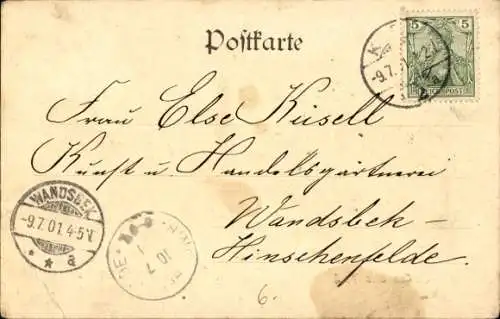 Postkarte
5 5
REICHSPOST
-9.7.
Frau Else Küsell
Kunst u. Handelsgärtnerei
Wandsbek-
Hinschenfelde.
WANDSBEK
-9.7.01.4-5N.
* * a
10 7
6.